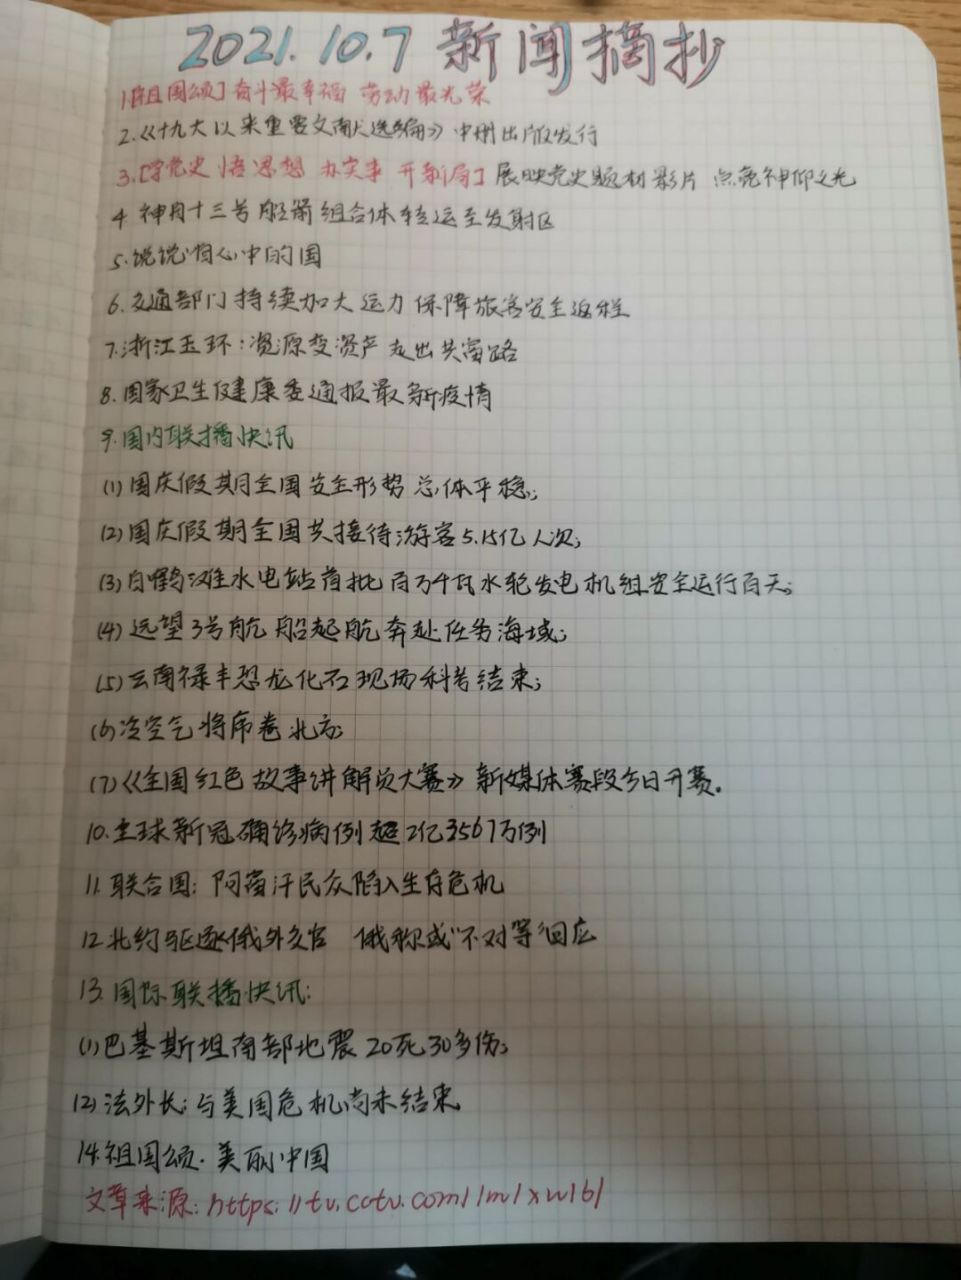 2021.10.7 新闻摘抄
1.[祖国颂]奋斗最幸福 劳动最光荣
2.《十九大以来重要文献选编》中册出版发行
3.[学党史 悟思想 办实事 开新局]展映党史题材影片 点亮神仰之光
4 神舟十三号船箭组合体转运至发射区
5.说说咱心中的国
6.交通部门持续加大运力保障旅客安全返程
7.浙江玉环:资源变资产走出共富路
8.国家卫生健康委通报最新疫情
9.国内联播快讯
(1)国庆假期全国安全形势总体平稳;
(2)国庆假期全国共接待游客5.15亿人次;
(3)白鹤滩水电站首批百万千瓦水轮发电机组安全运行百天;
(4)远望3号航船起航奔赴任务海域;
(5)云南禄丰恐龙化石现场科考结束;
(6)冷空气将席卷北方;
(7)《全国红色故事讲解员大赛》新媒体赛段今日开赛。
10.全球新冠确诊病例超2亿3567万例
11.联合国:阿富汗民众陷入生存危机
12.北约驱逐俄外交官 俄称或“不对等”回应
13.国际联播快讯:
(1)巴基斯坦南部地震20死30多伤;
(2)法外长:与美国危机尚未结束
14.祖国颂·美丽中国
文章来源:https://tv.cctv.com/lm/xwlb/